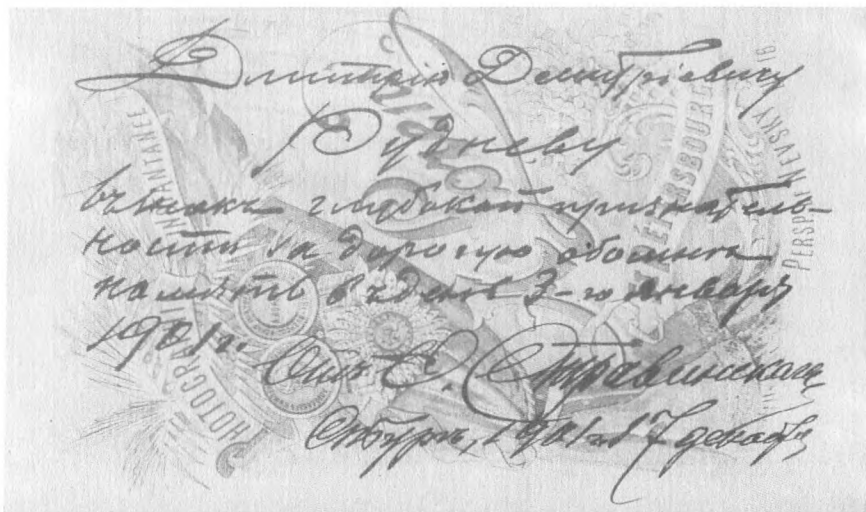 Дмитрію Дмитріевичу
Рудневу
въ знакъ глубокой признатель-
ности за дорогую обоимъ
память въ день 3-го Января
1901 г.
Отъ Ѳ. Стравинскаго
СПбургъ, 1901 г. 17 декабр
PHOTOGRAPHIE INSTANTANÉE
ST PÉTERSBOURG
PERSP. NEVSKY